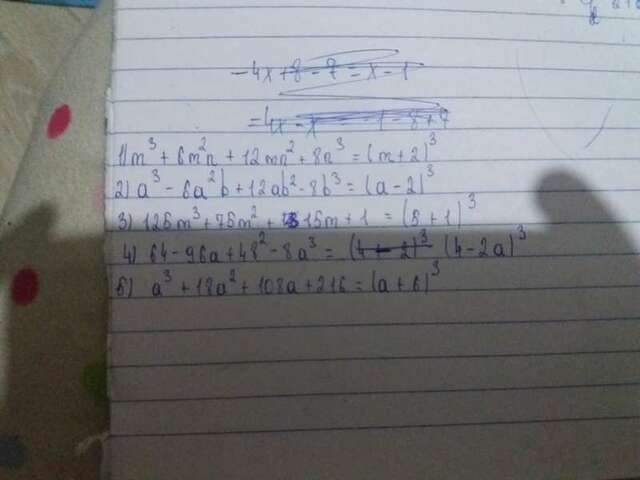 -4x+8-7=x-1
=4x-x=-1-8+7
1) m³ + 6m²n + 12mn² + 8n³ = (m+2)³
2) a³ - 6a²b + 12ab² - 8b³ = (a-2)³
3) 125m³ + 75m² + 15m + 1 = (5+1)³
4) 64 - 96a + 48² - 8a³ = (4-2)³ (4-2a)³
5) a³ + 18a² + 108a + 216 = (a+6)³